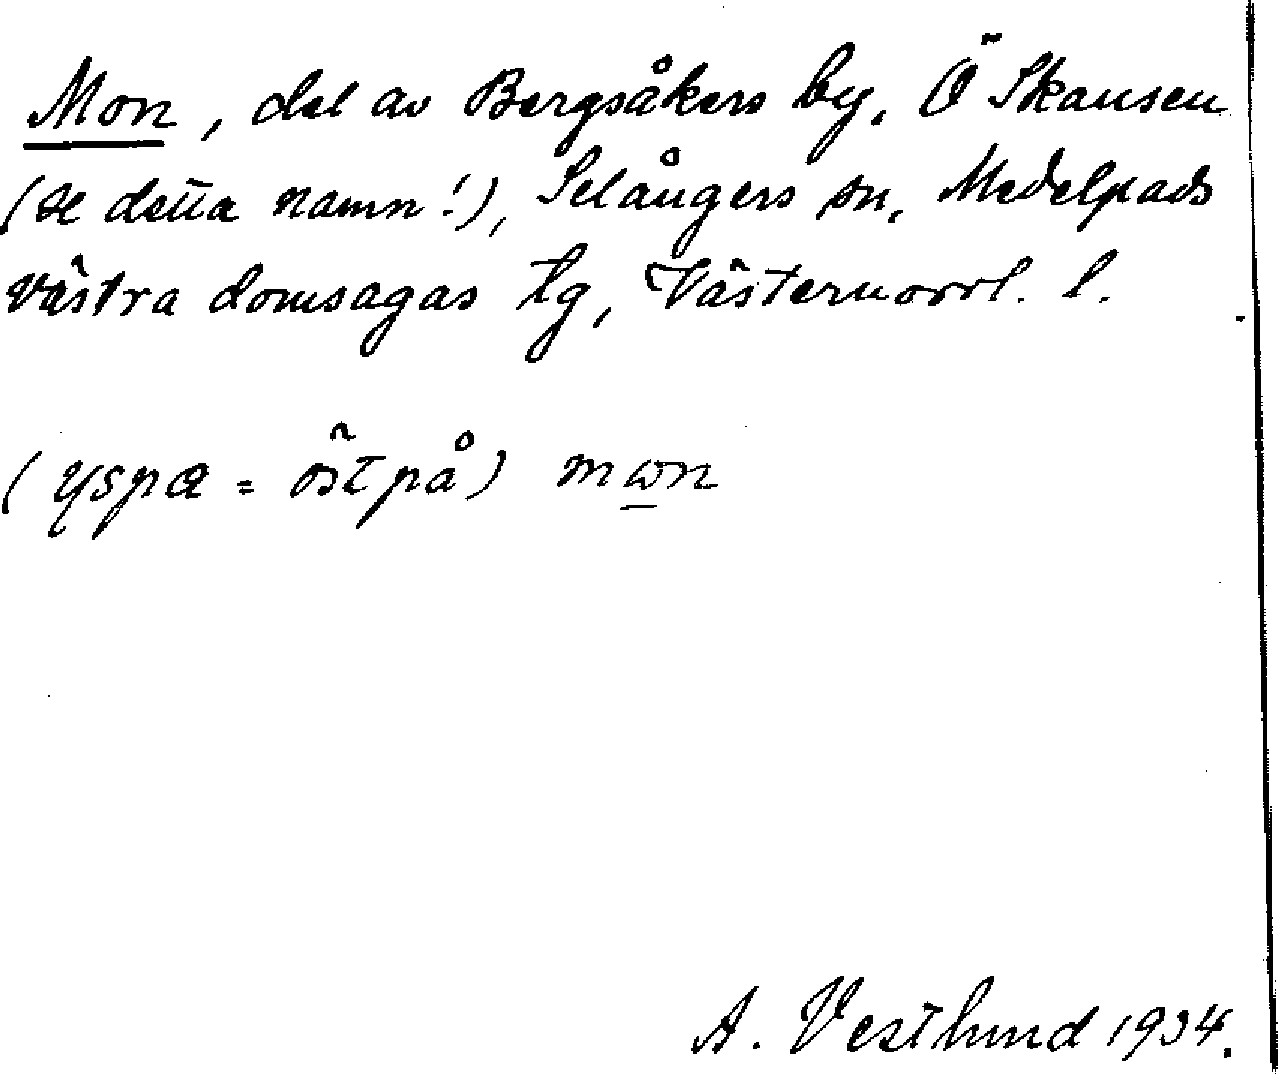 Mon, del av Bergsåkers by, Ö Skansen
(se detta namn!), Selångers sn, Medelpads
västra domsagas tg, Västernorrl. l.
(yspa = östpå) mωn
A. Vestlund 1934.